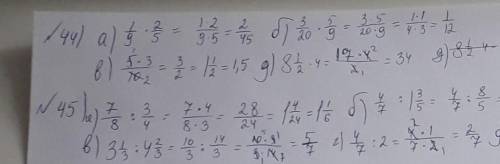 №44) а) 1/9 · 2/5 = 1·2/9·5 = 2/45 б) 3/20 · 5/9 = 3·5/20·9 = 1·1/4·3 = 1/12
в) 5·3/10 2 = 3/2 = 1 1/2 = 1,5 д) 8 1/2 · 4 = 17·4 2/2 1 = 34 д) 8 1/2
№45 а) 7/8 : 3/4 = 7·4/8·3 = 28/24 = 1 4/24 = 1 1/6 б) 4/7 : 1 3/5 = 4/7 : 8/5
в) 3 1/3 : 4 2/3 = 10/3 : 14/3 = = 5/7 г) 4/7 : 2 = 4 2·1/7·2 1 = 2/7